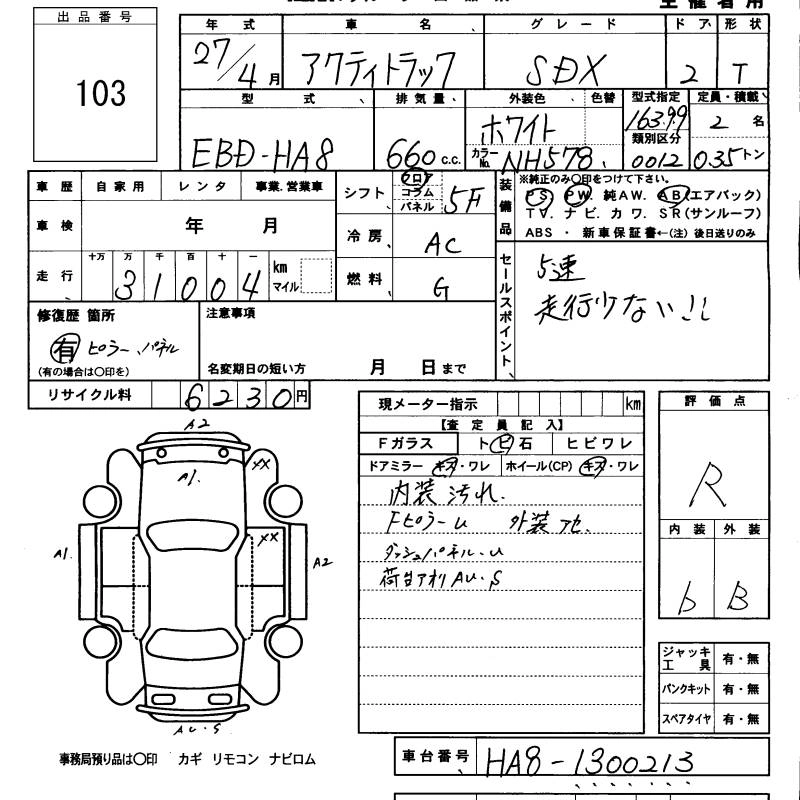 主催者用
出品番号
103
年式 車名 グレード ドア 形状
27/4月 アクティトラック SDX 2 T
型式 排気量 外装色 色替 型式指定 定員・積載
EBD-HA8 660 c.c. ホワイト 16399 2名
カラーNo. NH578 類別区分 0012 0.35トン
車歴 自家用 レンタ 事業.営業車
シフト フロア コラム パネル 5F
車検 年 月
冷房 AC
走行 十万 万 千 百 十 一 km マイル
31004
燃料 G
装備品
※純正のみ〇印をつけて下さい。
PS. PW. 純AW. AB(エアバック)
TV. ナビ. カワ. SR(サンルーフ)
ABS ・ 新車保証書←(注)後日送りのみ
セールスポイント
5速
走行少ない!!
修復歴 箇所
有 ピラー、パネル
(有の場合は〇印を)
注意事項
名変期日の短い方 月 日まで
リサイクル料 6230円
現メーター指示 km
【査定員記入】
Fガラス トビ石 ヒビワレ
ドアミラー キズ・ワレ ホイール(CP) キズ・ワレ
内装汚れ.
FピラーU 外装アセ.
ダッシュパネル.U
荷台アオリAU.S
評価点
R
内装 外装
b B
A2
A1. XX
A1. XX A2
AU.S
ジャッキ工具 有・無
パンクキット 有・無
スペアタイヤ 有・無
事務局預り品は〇印 カギ リモコン ナビロム
車台番号 HA8-1300213